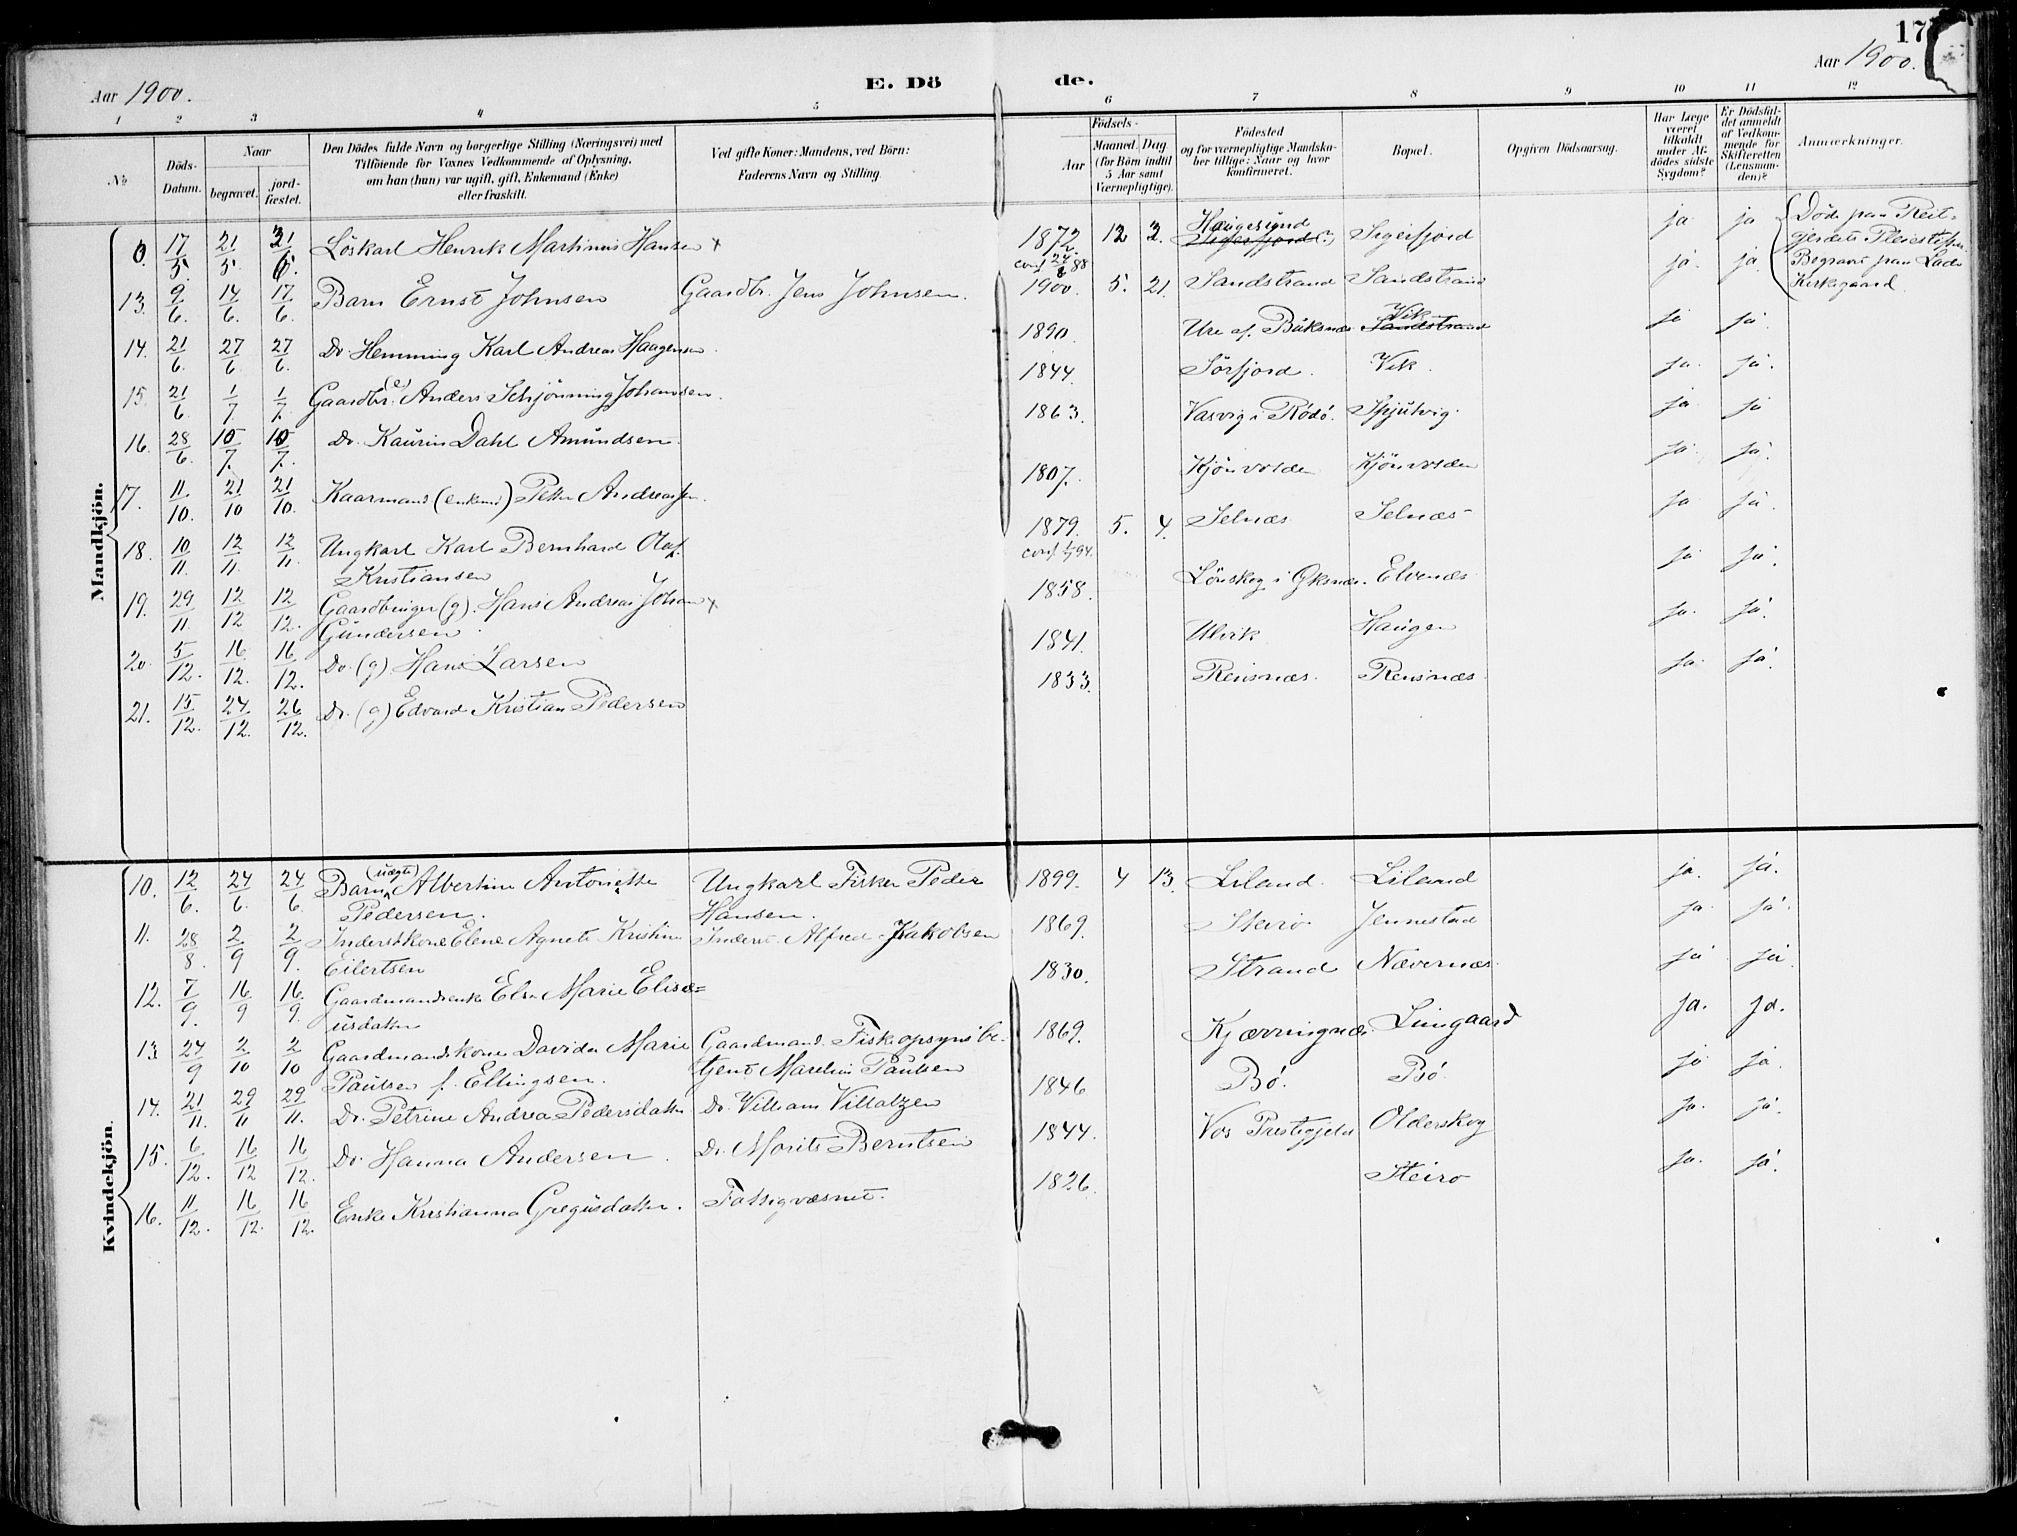 17
Aar 1900.
E. Dö
de.
Aar 1900.
1 2 3 4 5 6 7 8 9 10 11 12
№
Döds-Datum.
Naar
begravet.
jord-fæstet.
Den Dödes fulde Navn og borgerlige Stilling (Næringsvei) med
Tilföiende for Voxnes Vedkommende af Oplysning,
om han (hun) var ugift, gift, Enkemand (Enke)
eller fraskilt.
Ved gifte Koner: Mandens, ved Börn:
Faderens Navn og Stilling.
Födsels-
Aar
Maaned. Dag
(for Börn indtil
5 Aar samt
Værnepligtige).
Födested
og for værnepligtige Mandska-
ber tillige: Naar og hvor
konfirmeret.
Bopæl.
Opgiven Dödsaarsag.
Har Læge
været
tilkaldt
under Af-
dödes sidste
Sygdom?
Er Dödsfal-
det anmeldt
af Vedkom-
mende for
Skifteretten
(Lensman-
den)?
Anmærkninger.
Mandkjön.
0. 17/5 21/5 21/5 Löskarl Henrik Martinus Hansen + 1872 12 2. Haugesund Sigerfjord (?) Sigerfjord ja ja
conf 24/8 88
Döde paa Reit-
gjerdets Pleiestift.
Begravet paa Lade
Kirkegaard.
13. 9/6. 14/6. 17/6. Barn Ernst Johnsen Gaardbr. Jens Johnsen. 1900. 5. 21. Sandstrand Sandstrand ja. ja.
14. 21/6. 27/6. 27/6. Do Hemming Karl Andreas Haagensen. 1890. Ure af. Buksnæs Vik Sandstrand ja ja.
15. 21/6. 1/7 1/7. Gaardbr. (e) Anders Schjönning Johansen. 1844. Sörfjord. Vik. ja. ja.
16. 28/6. 10/7. 10/7. Do. Kaurin Dahl Amundsen. 1863. Vasvig i Rödö. Spjutvig. ja. ja
17. 11/10. 21/10 21/10. Kaarmand (enkem) Petter Andreassen. 1807. Kjönvolden Kjönvolden ja. ja.
18. 10/11. 12/11. 12/11. Ungkarl Karl Bernhard Olaf 1879. 5. 4. Selnæs Selnæs ja ja.
Kristiansen
19. 29/11. 12/12 12/12. Gaardbruger (g). Hans Andreas Johan + 1858. Lönskog i Öksnæs. Elvenæs ja ja.
Gundersen.
20. 5/12. 16/12. 16/12. Do. (g) Hans Larsen 1841. Ulvik Haugen ja. ja.
21. 15/12. 24/12. 26/12. Do. (g) Edvard Kristian Pedersen 1833. Reinsnæs. Reinsnæs. ja. ja.
Kvindekjön.
10. 12/6. 24/6. 24/6 Barn (uægte) Albertine Antonette Ungkarl Fisker Peder 1899. 4 13. Liland. Liland ja. ja.
Pedersen. Hansen.
11. 28/8. 2/9 2/9. Inderstkone Elene Agnete Kristine Inderst Alfred Jakobsen 1869. Steiro Jennestad ja. ja.
Eilertsen
12. 7/9. 16/9 16/9. Gaardmandsenke Elen Marie Elisæ= 1830. Strand Nævernæs. ja ja
usdatter
13 24/9 2/10 2/10 Gaardmandskone Davida Marie Gaardmand. Fiskopsynsbe- 1869. Kjærringnæs. Lungaard ja. ja.
Paulsen f. Ellingsen. tjent Marelius Paulsen
14. 21/11. 29/11 29/11. Do. Petrine Andrea Pedersdatter Do. William Villatzen 1846 Bö. Bö. ja ja.
15. 6/12. 16/12 16/12. Do. Hanna Andersen. Do. Morits Berntsen 1844. Vos Prestegjeld Olderskog ja. ja.
16. 11/12. 16/12. 16/12. Enke Kristianna Gregusdatter. Fattigvæsnet. 1826. Steiro ja. ja.